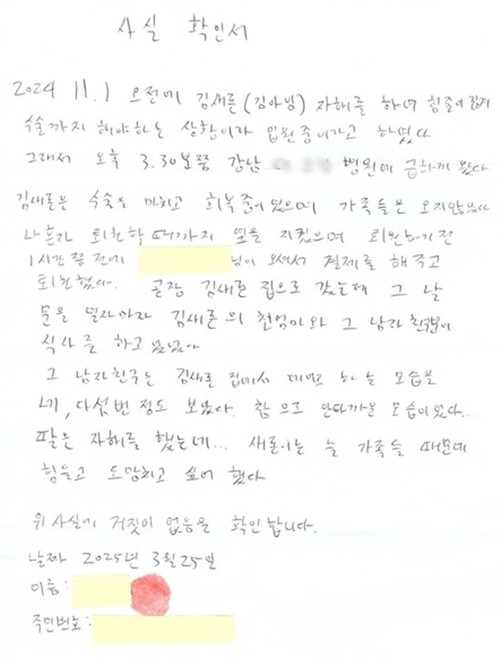 사실 확인서
2024 11.1 오전에 김새론(김아임) 자해를 하여 힘줄이 끊겨
수술까지 해야하는 상황이라 입원중이라고 하였다
그래서 오후 3.30보쯤 강남 병원에 급하게 왔다
김새론은 수술을 마치고 회복중이 있으며 가족들은 오지않았다
나혼자 퇴원할때까지 옆을 지켰으며 퇴원하기전
1시간 쯤 전에 님이 오셔서 결제를 해주고
퇴원했다. 곧장 김새론 집으로 갔는데 그 날
문을 열자마자 김새론의 친엄마와 그 남자친구분이
식사를 하고 있었다
그 남자친구는 김새론 집에서 데이트 하는 모습을
네, 다섯번 정도 보았다. 참으로 안타까운 모습이었다...
딸은 자해를 했는데... 새론이는 늘 가족들 때문에
힘들고 도망치고 싶어 했다
위 사실에 거짓이 없음을 확인합니다.
날짜 2025년 3월 25일
이름:
주민번호: